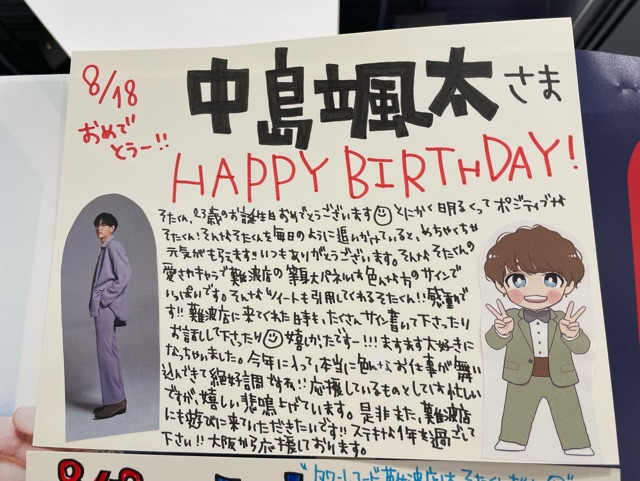 8/18
おめで
とうー!!
中島颯太さま
HAPPY BIRTHDAY!
そたくん、23歳のお誕生日おめでとうございます☺とにかく明るくってポジティブな
そたくん!そんなそたくんを毎日のように追いかけていると、めちゃくちゃ
元気がもらえます!!いつもありがとうございます。そんなそたくんの
愛されキャラで難波店の等身大パネルも色んな方のサインで
いっぱいです。そんなツイートも引用してくれるそたくん!!感動で
す!!難波店に来てくれた日時も、たくさんサイン書いて下さったり
お話しして下さったり☺嬉かったですー!!!ますます大好きに
なっちゃいました。今年に入って、本当に色んなお仕事が舞い
込んできて絶好調ですね!!応援しているものとしては忙しい
ですが、嬉しい悲鳴上げています。是非また、難波店
にも遊びに来ていただきたいです!!ステキな1年を過ごして
下さい!!大阪から応援しております。
8/18